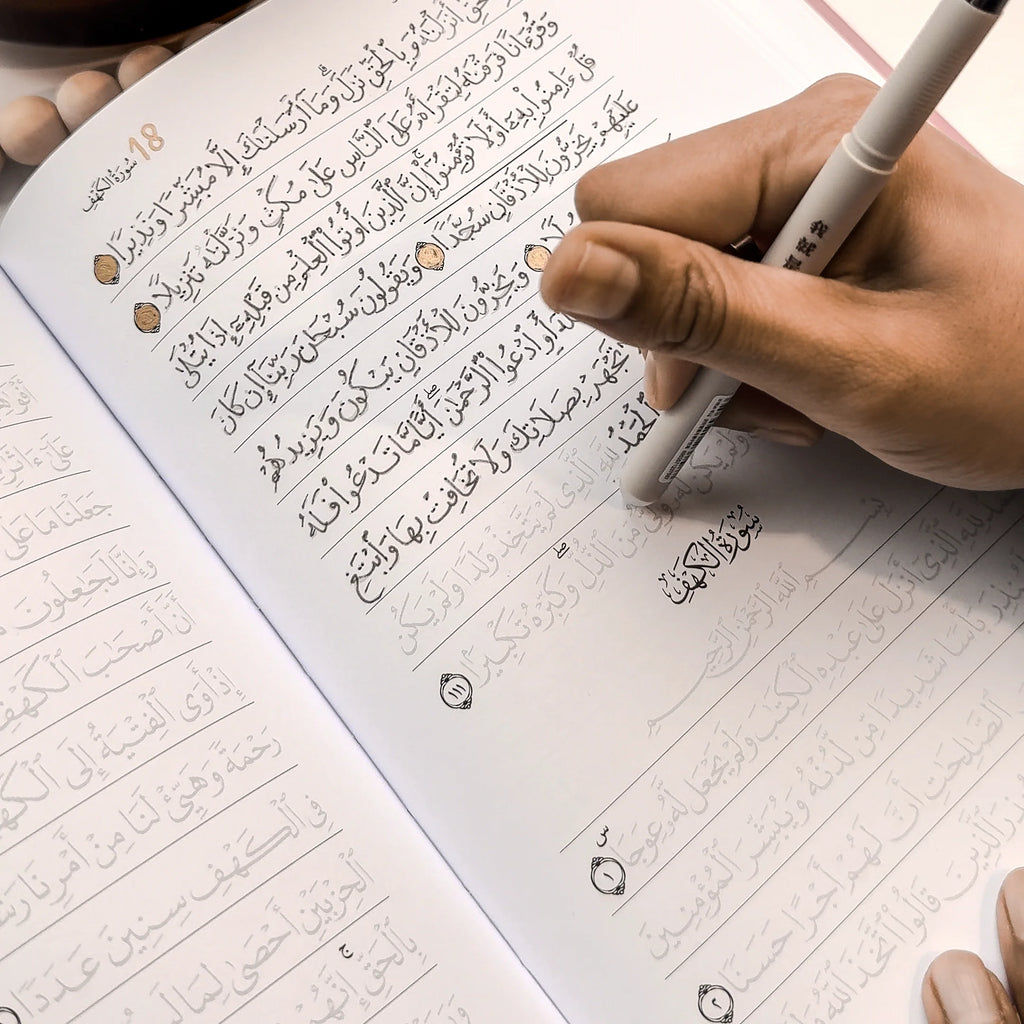 18
سُورَةُ الكَهْفِ
أَنزَلْنَٰهُ وَبِٱلْحَقِّ نَزَلَ وَمَآ أَرْسَلْنَٰكَ إِلَّا مُبَشِّرًا وَنَذِيرًا
وَقُرْءَانًا فَرَقْنَٰهُ لِتَقْرَأَهُۥ عَلَى ٱلنَّاسِ عَلَىٰ مُكْثٍ وَنَزَّلْنَٰهُ تَنزِيلًا
قُلْ ءَامِنُوا۟ بِهِۦٓ أَوْ لَا تُؤْمِنُوٓا۟ إِنَّ ٱلَّذِينَ أُوتُوا۟ ٱلْعِلْمَ مِن قَبْلِهِۦٓ إِذَا يُتْلَىٰ
عَلَيْهِمْ يَخِرُّونَ لِلْأَذْقَانِ سُجَّدًا وَيَقُولُونَ سُبْحَٰنَ رَبِّنَآ إِن كَانَ
وَيَخِرُّونَ لِلْأَذْقَانِ يَبْكُونَ وَيَزِيدُهُمْ
أَوِ ٱدْعُوا۟ ٱلرَّحْمَٰنَ أَيًّا مَّا تَدْعُوا۟ فَلَهُ
تَجْهَرْ بِصَلَاتِكَ وَلَا تُخَافِتْ بِهَا وَٱبْتَغِ
ٱلْحَمْدُ لِلَّهِ ٱلَّذِى لَمْ يَتَّخِذْ وَلَدًا وَلَمْ يَكُن
وَلَمْ يَكُن لَّهُۥ وَلِىٌّ مِّنَ ٱلذُّلِّ وَكَبِّرْهُ تَكْبِيرًۢا ١١١
سُورَةُ الكَهْفِ
بِسْمِ ٱللَّهِ ٱلرَّحْمَٰنِ ٱلرَّحِيمِ
لِلَّهِ ٱلَّذِىٓ أَنزَلَ عَلَىٰ عَبْدِهِ ٱلْكِتَٰبَ وَلَمْ يَجْعَل لَّهُۥ عِوَجَا ١
بَأْسًا شَدِيدًا مِّن لَّدُنْهُ وَيُبَشِّرَ ٱلْمُؤْمِنِينَ
ٱلصَّٰلِحَٰتِ أَنَّ لَهُمْ أَجْرًا حَسَنًا ٢
ٱلَّذِينَ قَالُوا۟ ٱتَّخَذَ ٱللَّهُ
عَلَىٰٓ ءَاثَٰرِ
جَعَلْنَا مَا عَلَى
وَإِنَّا لَجَٰعِلُونَ
أَنَّ أَصْحَٰبَ ٱلْكَهْفِ
إِذْ أَوَى ٱلْفِتْيَةُ إِلَى ٱلْكَهْفِ
رَحْمَةً وَهَيِّئْ لَنَا مِنْ أَمْرِنَا
فِى ٱلْكَهْفِ سِنِينَ عَدَدًا
ٱلْحِزْبَيْنِ أَحْصَىٰ لِمَا
بِٱلْحَقِّ إِنَّهُمْ